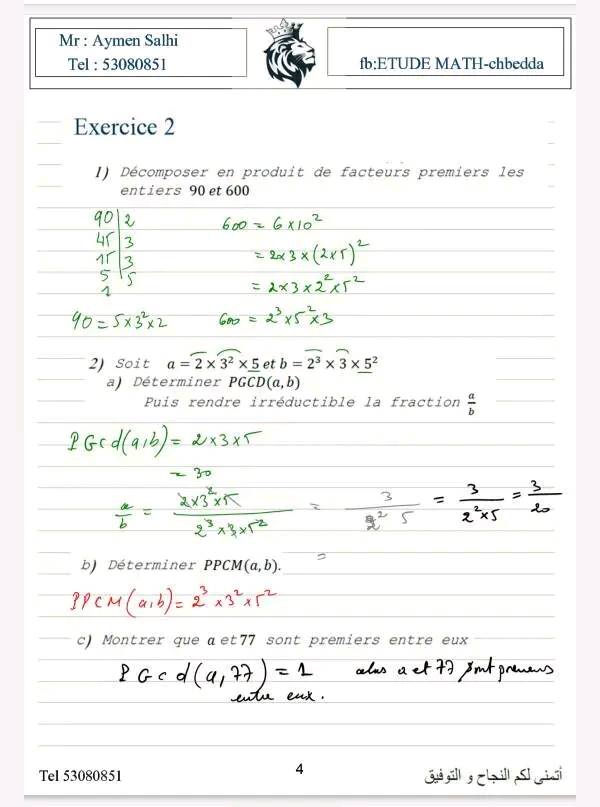 Mr : Aymen Salhi
Tel : 53080851
fb:ETUDE MATH-chbedda
Exercice 2
1) Décomposer en produit de facteurs premiers les
entiers 90 et 600
90 | 2
45 | 3
15 | 3
5 | 5
1
90 = 5 x 3² x 2
600 = 6 x 10²
= 2 x 3 x (2 x 5)²
= 2 x 3 x 2² x 5²
600 = 2³ x 5² x 3
2) Soit a = 2 × 3² × 5 et b = 2³ × 3 × 5²
a) Déterminer PGCD(a,b)
Puis rendre irréductible la fraction a/b
PGcd(a,b) = 2 x 3 x 5
= 30
a/b = 2x3²x5 / 2³x3x5² = 3 / 2² 5 = 3 / 2²x5 = 3/20
=
b) Déterminer PPCM(a,b).
PPCM(a,b) = 2³ x 3² x 5²
c) Montrer que a et 77 sont premiers entre eux
PGcd(a,77) = 1 alors a et 77 sont premiers
entre eux.
Tel 53080851
4
أتمنى لكم النجاح و التوفيق